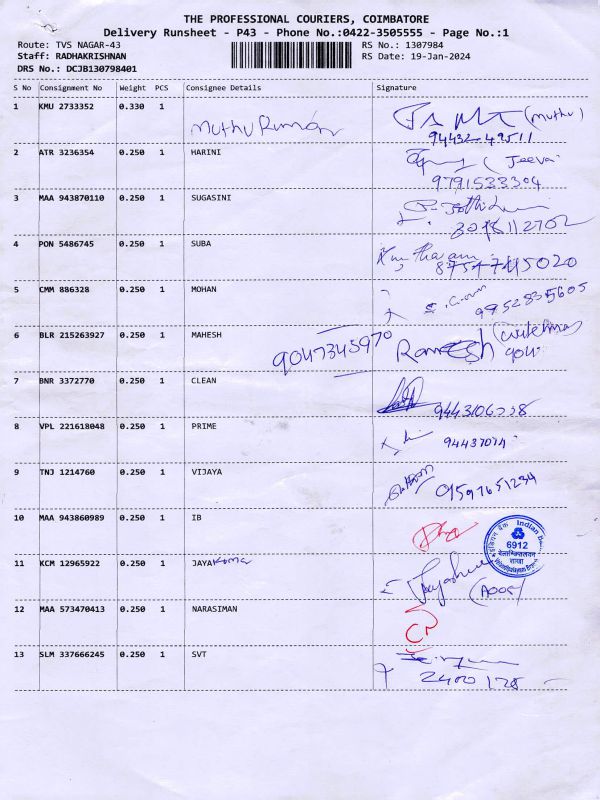 THE PROFESSIONAL COURIERS, COIMBATORE
Delivery Runsheet - P43 - Phone No.:0422-3505555 - Page No.:1
Route: TVS NAGAR-43 RS No.: 1307984
Staff: RADHAKRISHNAN RS Date: 19-Jan-2024
DRS No.: DCJB130798401
S No Consignment No Weight PCS Consignee Details Signature
1 KMU 2733352 0.330 1 (muthu)
94432-49511
2 ATR 3236354 0.250 1 HARINI (Jeeva
9791533304
3 MAA 943870110 0.250 1 SUGASINI
4 PON 5486745 0.250 1 SUBA
5 CMM 886328 0.250 1 MOHAN
9952835605
6 BLR 215263927 0.250 1 MAHESH 9047345970 Ramesh
904
7 BNR 3372770 0.250 1 CLEAN
8 VPL 221618048 0.250 1 PRIME
9 TNJ 1214760 0.250 1 VIJAYA 9597651234
10 MAA 943860989 0.250 1 IB
Indian
6912
शाखा
11 KCM 12965922 0.250 1 JAYA
12 MAA 573470413 0.250 1 NARASIMAN
13 SLM 337666245 0.250 1 SVT